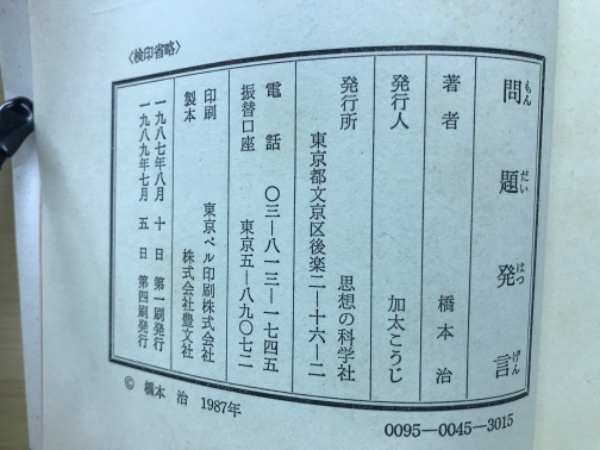 問題発言
もんだいはつげん
著者 橋本治
発行人 加太こうじ
発行所 思想の科学社
東京都文京区後楽二―十六―二
電話 〇三―八一三―一七四五
振替口座 東京五―八九〇七二
印刷 東京ベル印刷株式会社
製本 株式会社豊文社
一九八七年八月十日 第一刷発行
一九八九年七月五日 第四刷発行
〈検印省略〉
© 橋本 治 1987年
0095―0045―3015